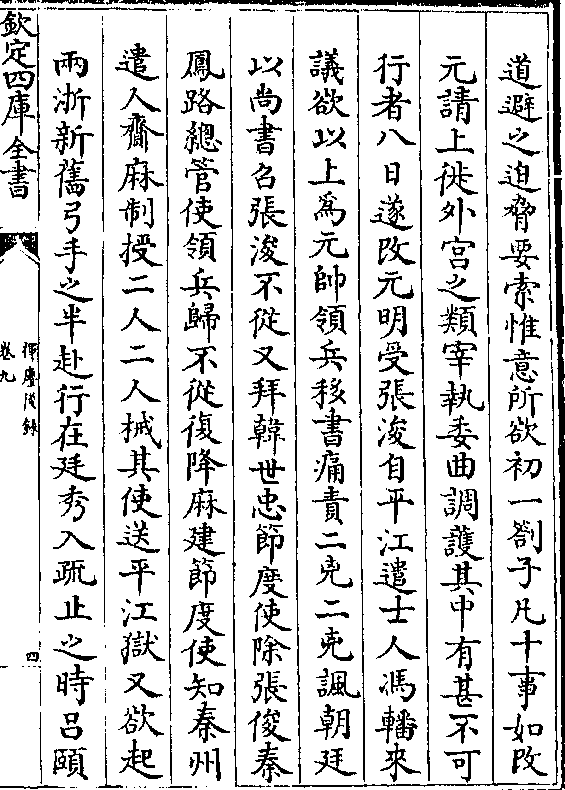 道避之迫脅要索惟意所欲初一劄子凡十事如改
元請上徙外宮之類宰執委曲調護其中有甚不可
行者八日遂改元明受張浚自平江遣士人馮轓來
議欲以上爲元帥領兵移書痛責二兇二兇諷朝廷
以尚書召張浚不從又拜韓世忠節度使除張俊秦
鳳路總管使領兵歸不從復降麻建節度使知秦州
遣人齎麻制授二人二人械其使送平江獄又欲起
兩浙新舊弓手之半赴行在廷秀入疏止之時吕頤
欽定四庫全書
揮麈後録
卷九
四